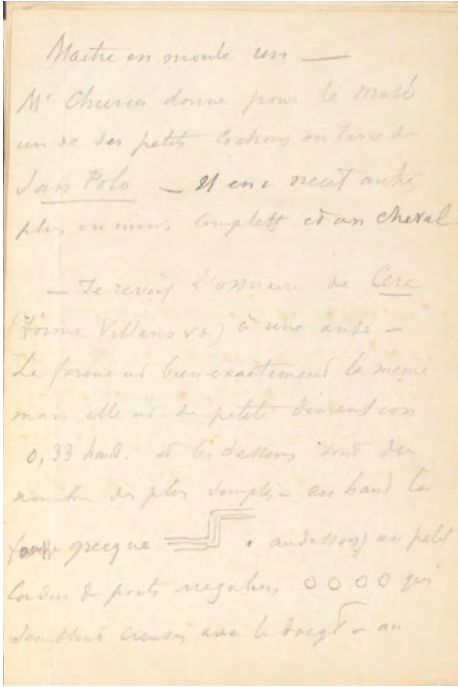 Mettre en moule un —
Mr Chierici donne pour le Musé
un de ses petits cochons en terre de
San Polo — Il en a neuf autres
plus ou moins complets et un cheval
— Je revois l'ossuaire de Cère
(forme Villanova) à une anse —
La forme est bien exactement la même
mais elle est de petite dimension
0,33 haut. et les dessins sont des
plus simples — en haut la
grecque . au dessous un petit
cordon de points irreguliers O O O O qui
semblent creusés avec le doigt — au